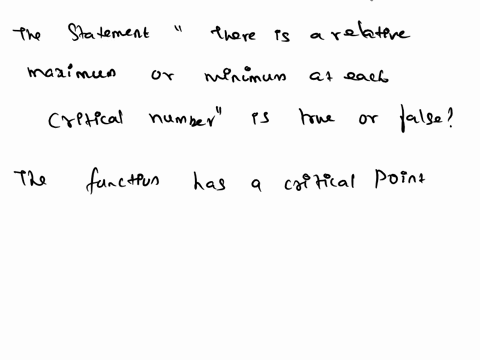 The Statement " There is a relative
maximum or minimum at each
critical number" is true or false?
The function has a critical Point